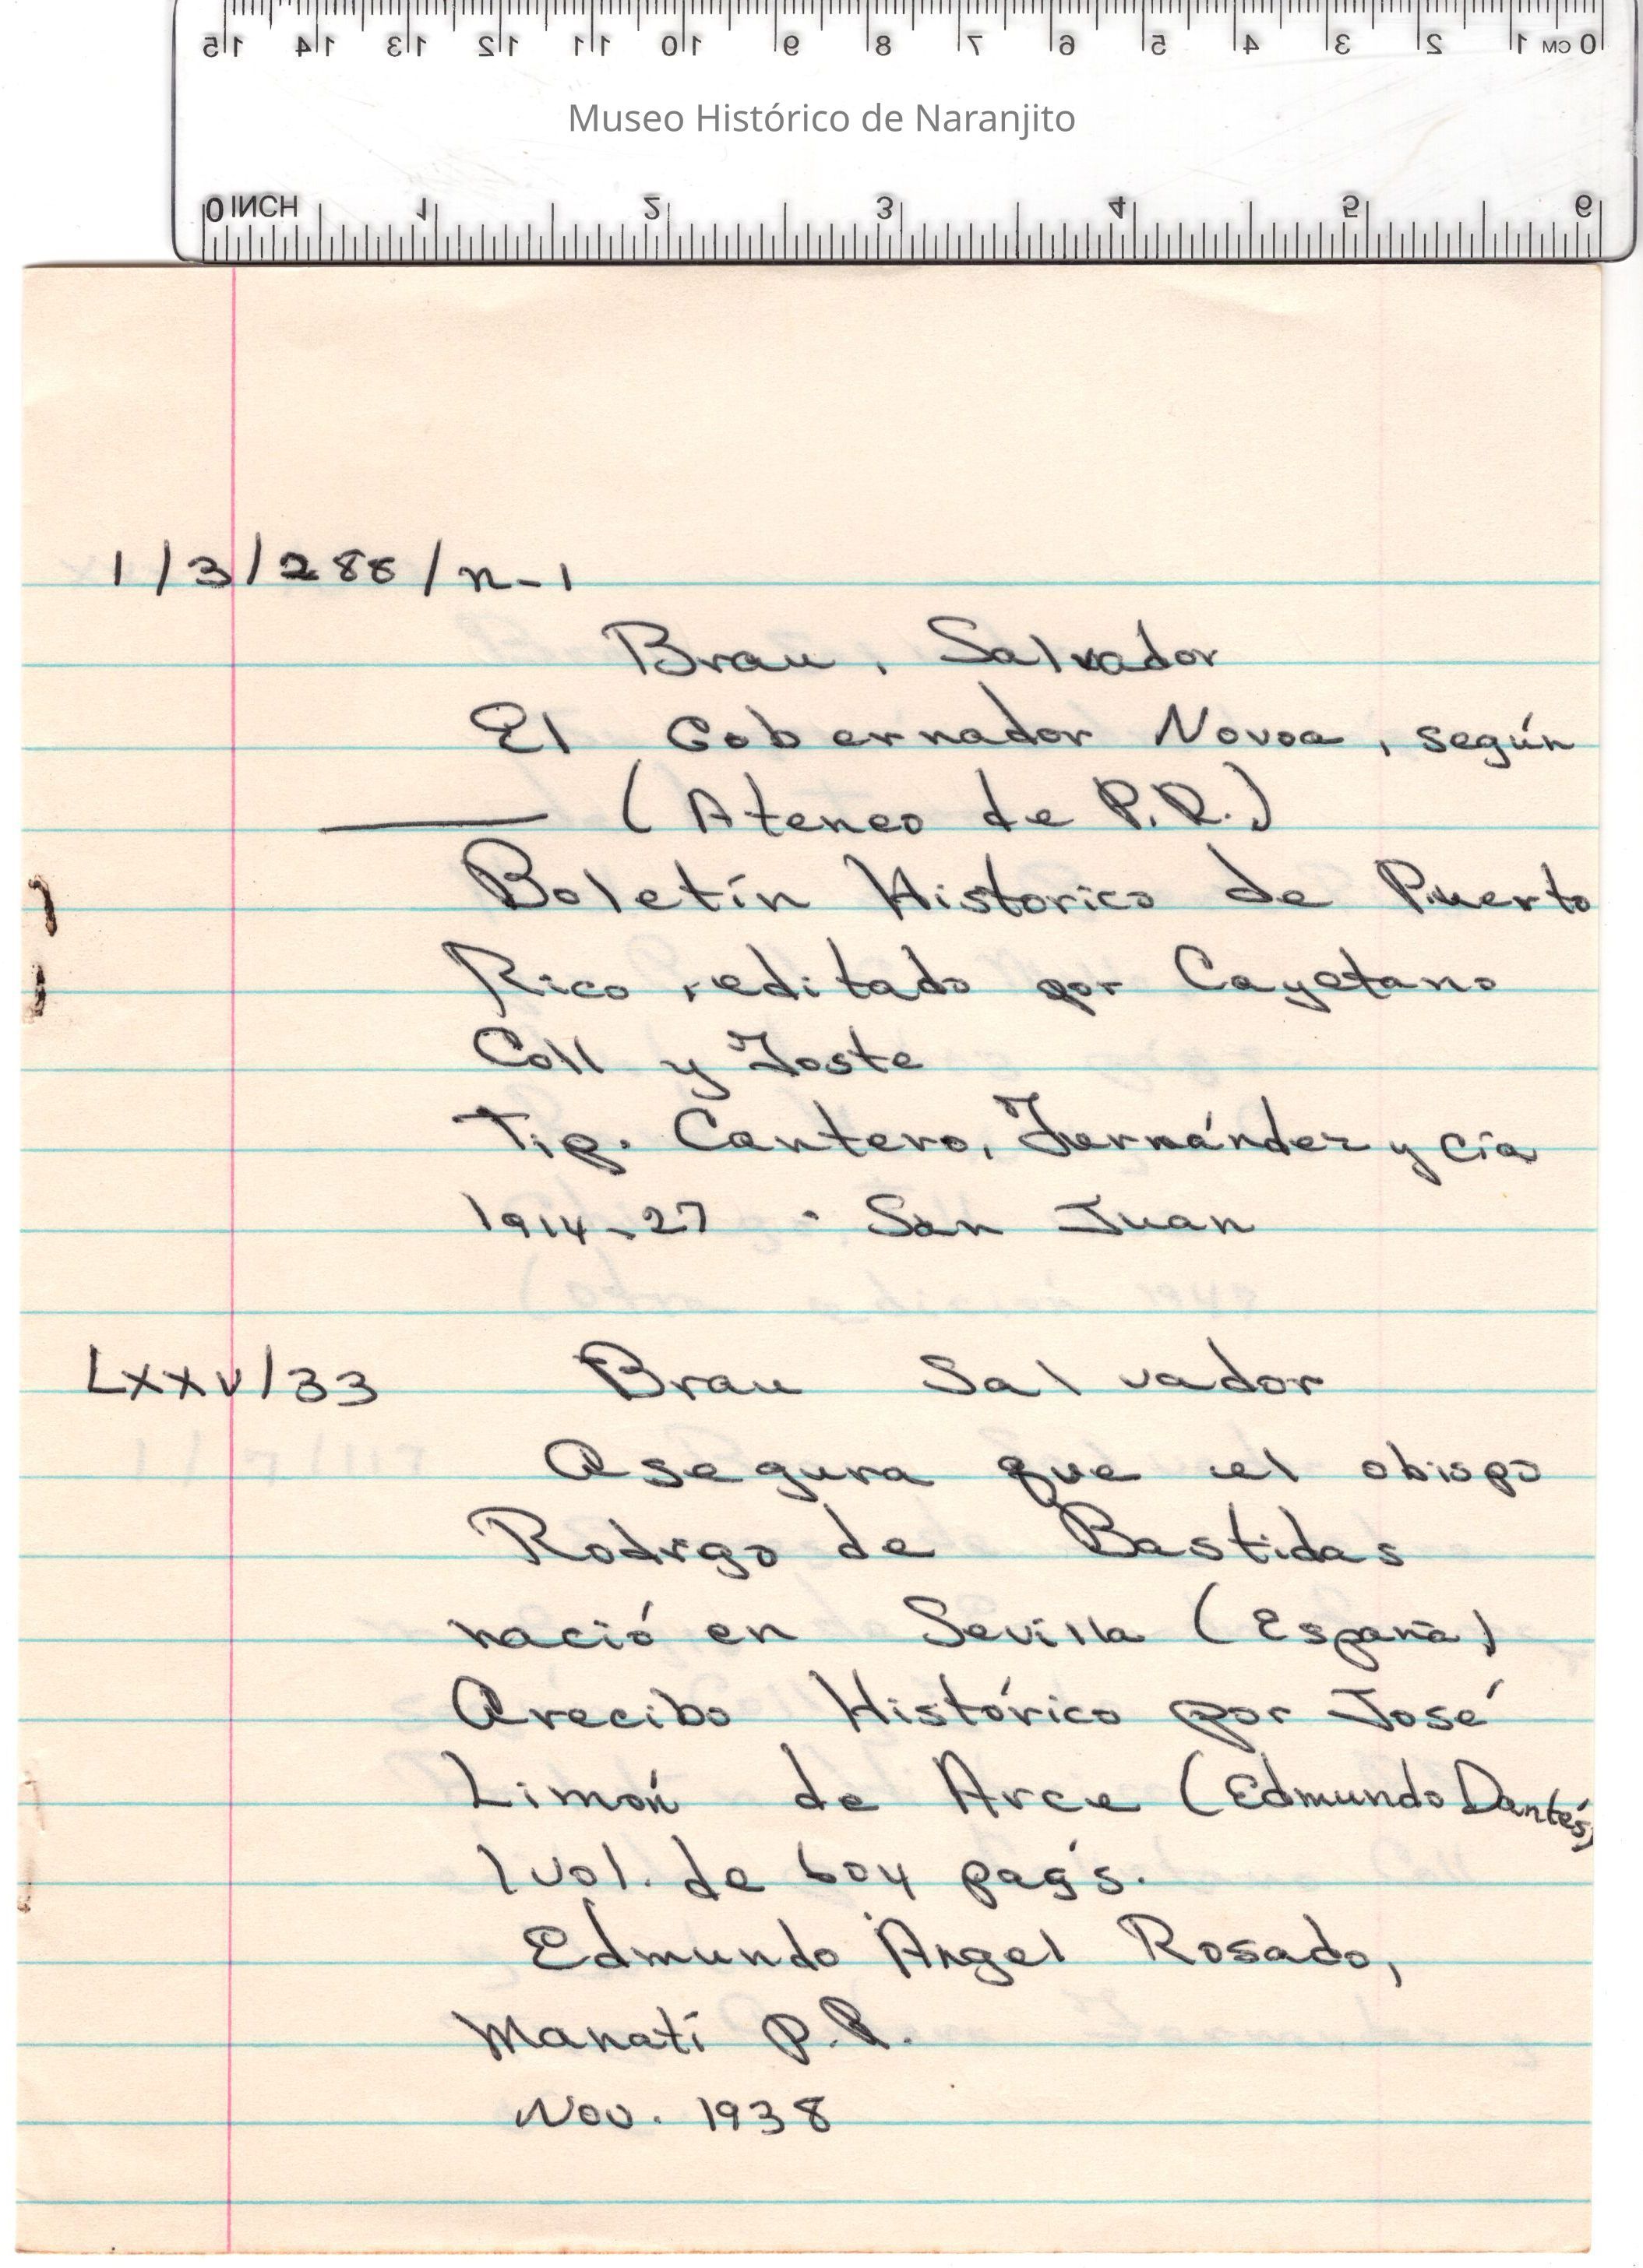 15 14 13 12 11 10 9 8 7 6 5 4 3 2 1 CM 0
Museo Histórico de Naranjito
0 INCH 1 2 3 4 5 6
1/3/288/n-1
Brau, Salvador
El Gobernador Novoa, según
——— (Ateneo de P.R.)
Boletín Historico de Puerto
Rico, editado por Cayetano
Coll y Toste
Tip. Cantero, Fernández y Cía
1914-27 - San Juan
LXXV/33 Brau Salvador
Asegura que el obispo
Rodrgo de Bastidas
nació en Sevilla (España)
Arecibo Histórico por José
Limón de Arce (Edmundo Dantés)
1 vol. de 604 pags.
Edmundo Angel Rosado,
Manatí P.R.
Nov. 1938